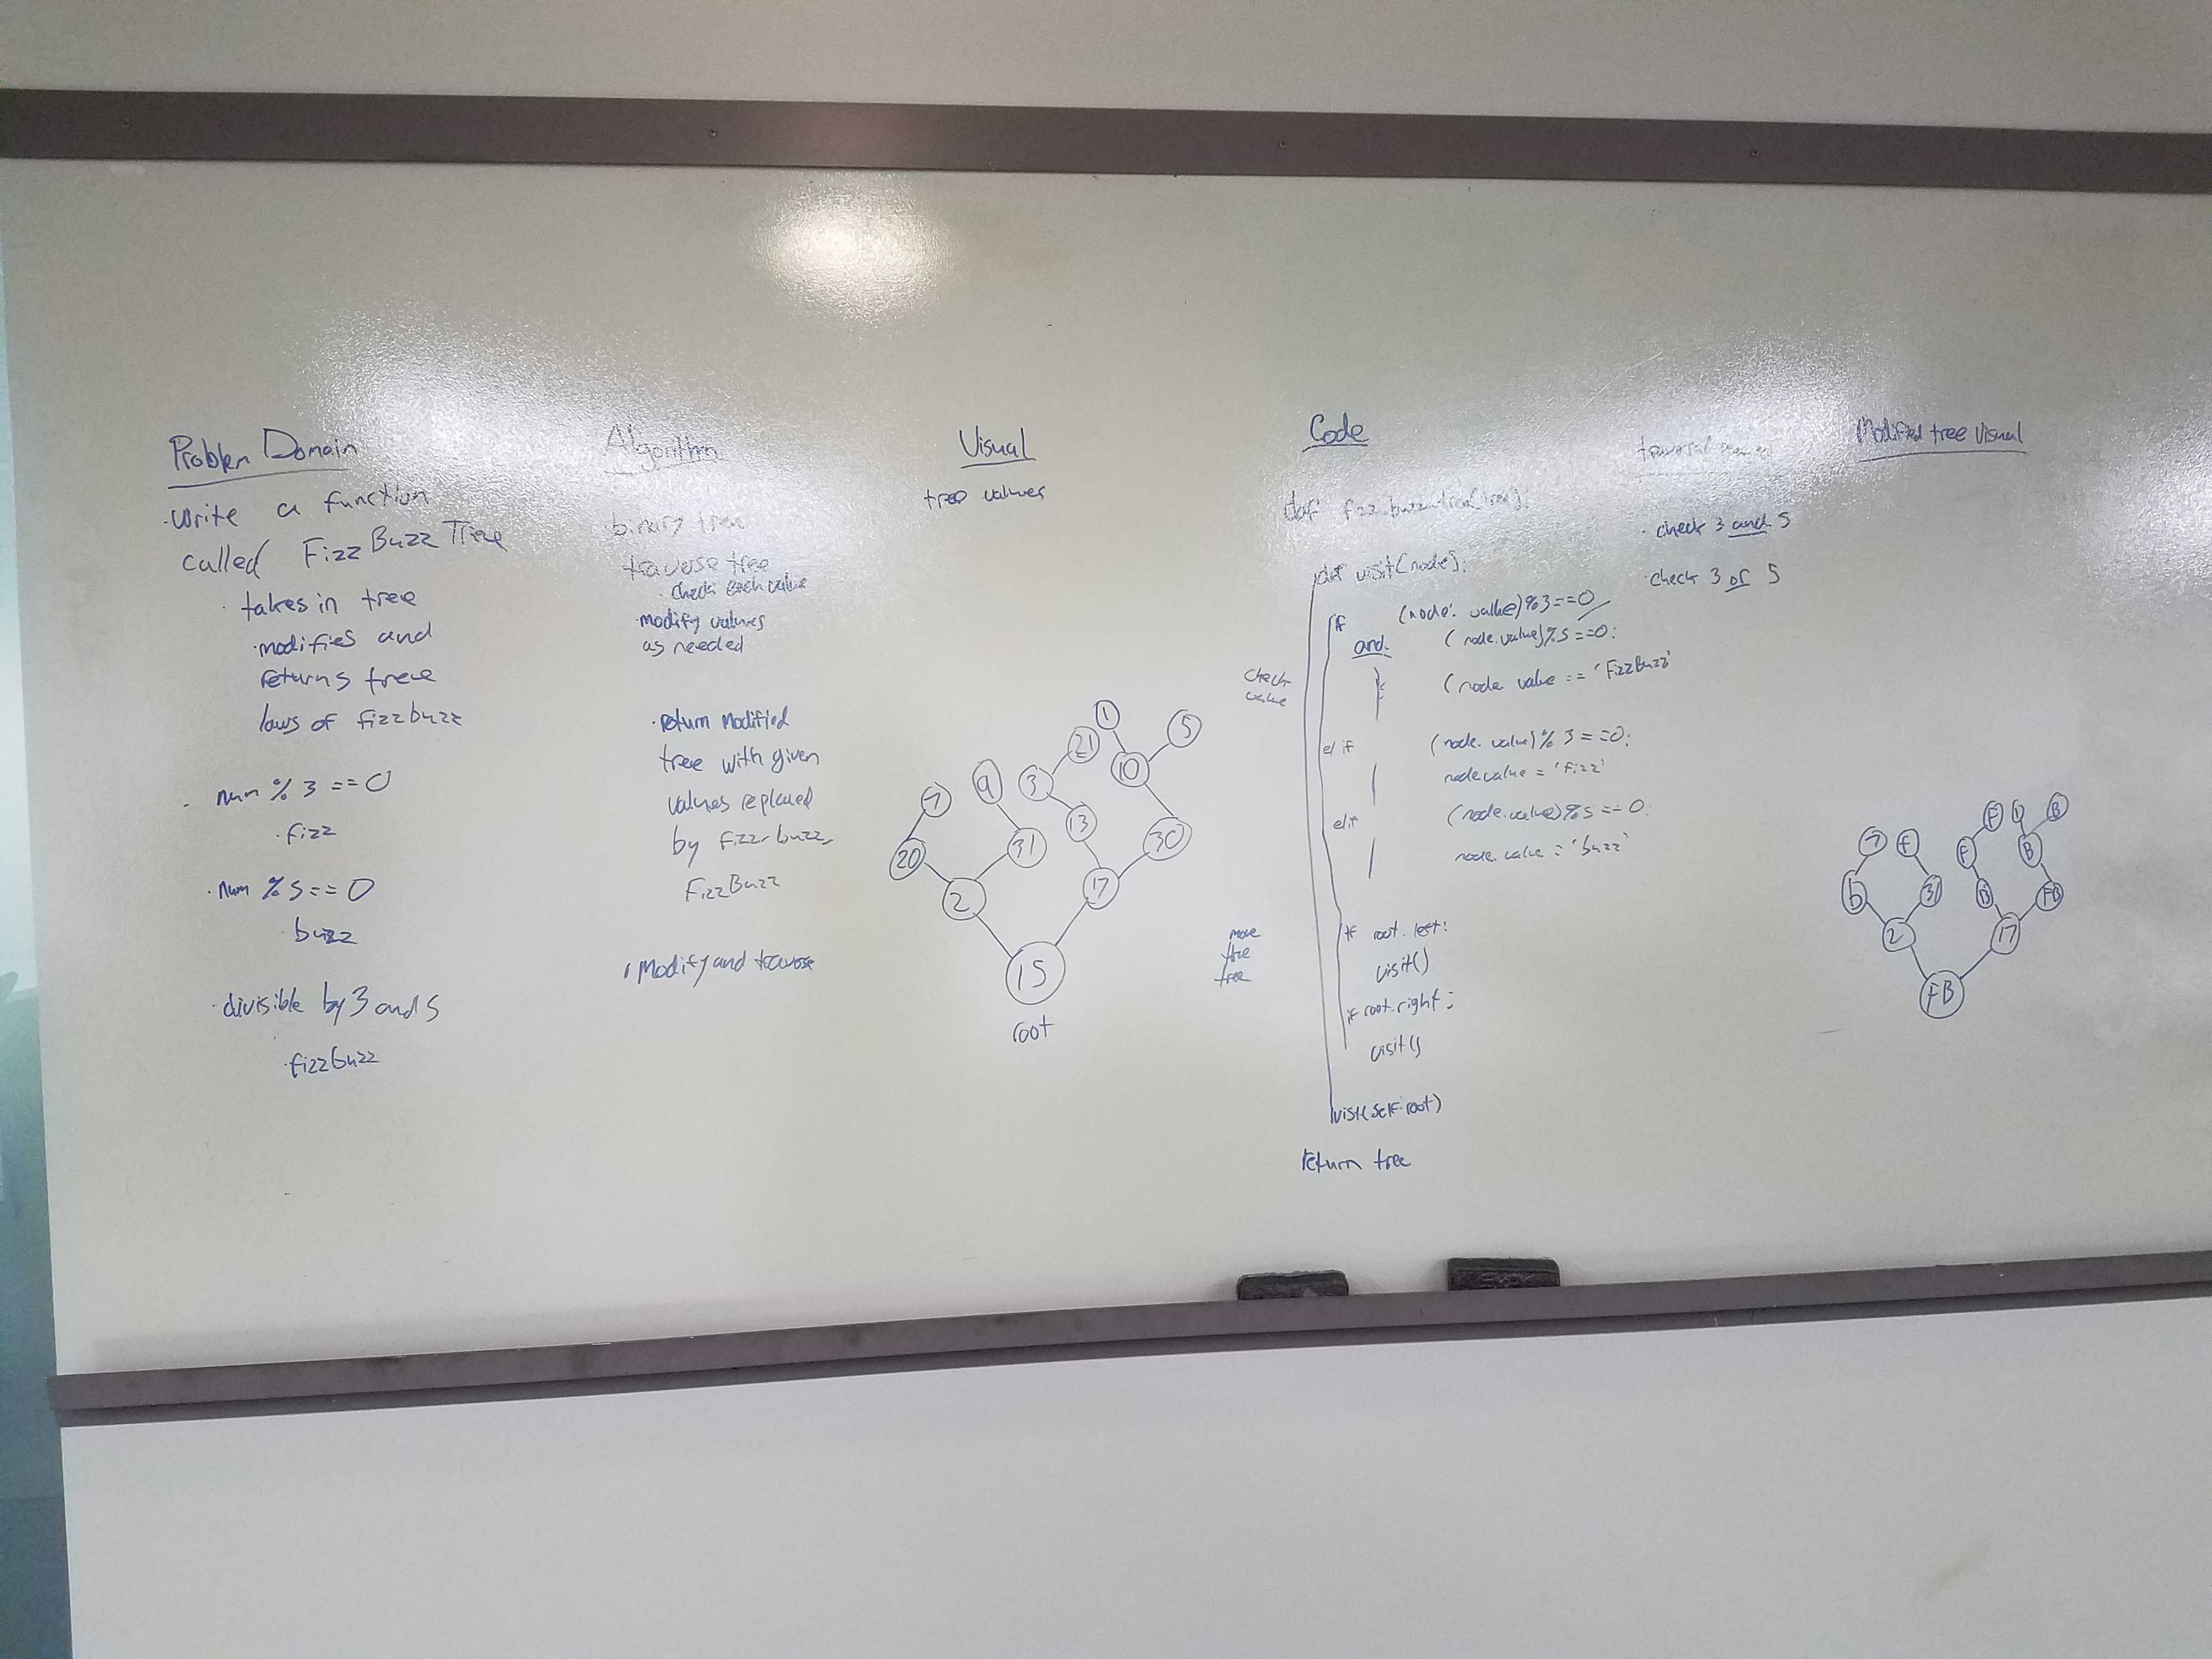 Problem Domain
· write a function
called FizzBuzz Tree
· takes in tree
· modifies and
returns tree
laws of fizzbuzz
· num % 3 == 0
· fizz
· num % 5 == 0
buzz
· divisible by 3 and 5
· fizzbuzz
Algorithm
binary tree
traverse tree
· check each value
· modify values
as needed
· return modified
tree with given
values replaced
by fizz, buzz,
FizzBuzz
Modify and traverse
Visual
tree values
1
5
21
7
9
3
10
20
31
13
30
2
17
15
root
Code
def fizzbuzztree(tree):
def visit(node):
if (node. value)%3==0
and (node.value)%5==0:
(node value == 'FizzBuzz'
elif (node. value)% 3 ==0:
node value = 'fizz'
elif (node.value)%5 == 0:
node.value = 'buzz'
if root. left:
visit()
if root.right:
visit()
visit(self.root)
return tree
check
value
move
the
tree
traversal
· check 3 and 5
· check 3 or 5
Modified tree visual
F
1
B
7
F
F
B
b
31
13
FB
2
17
FB